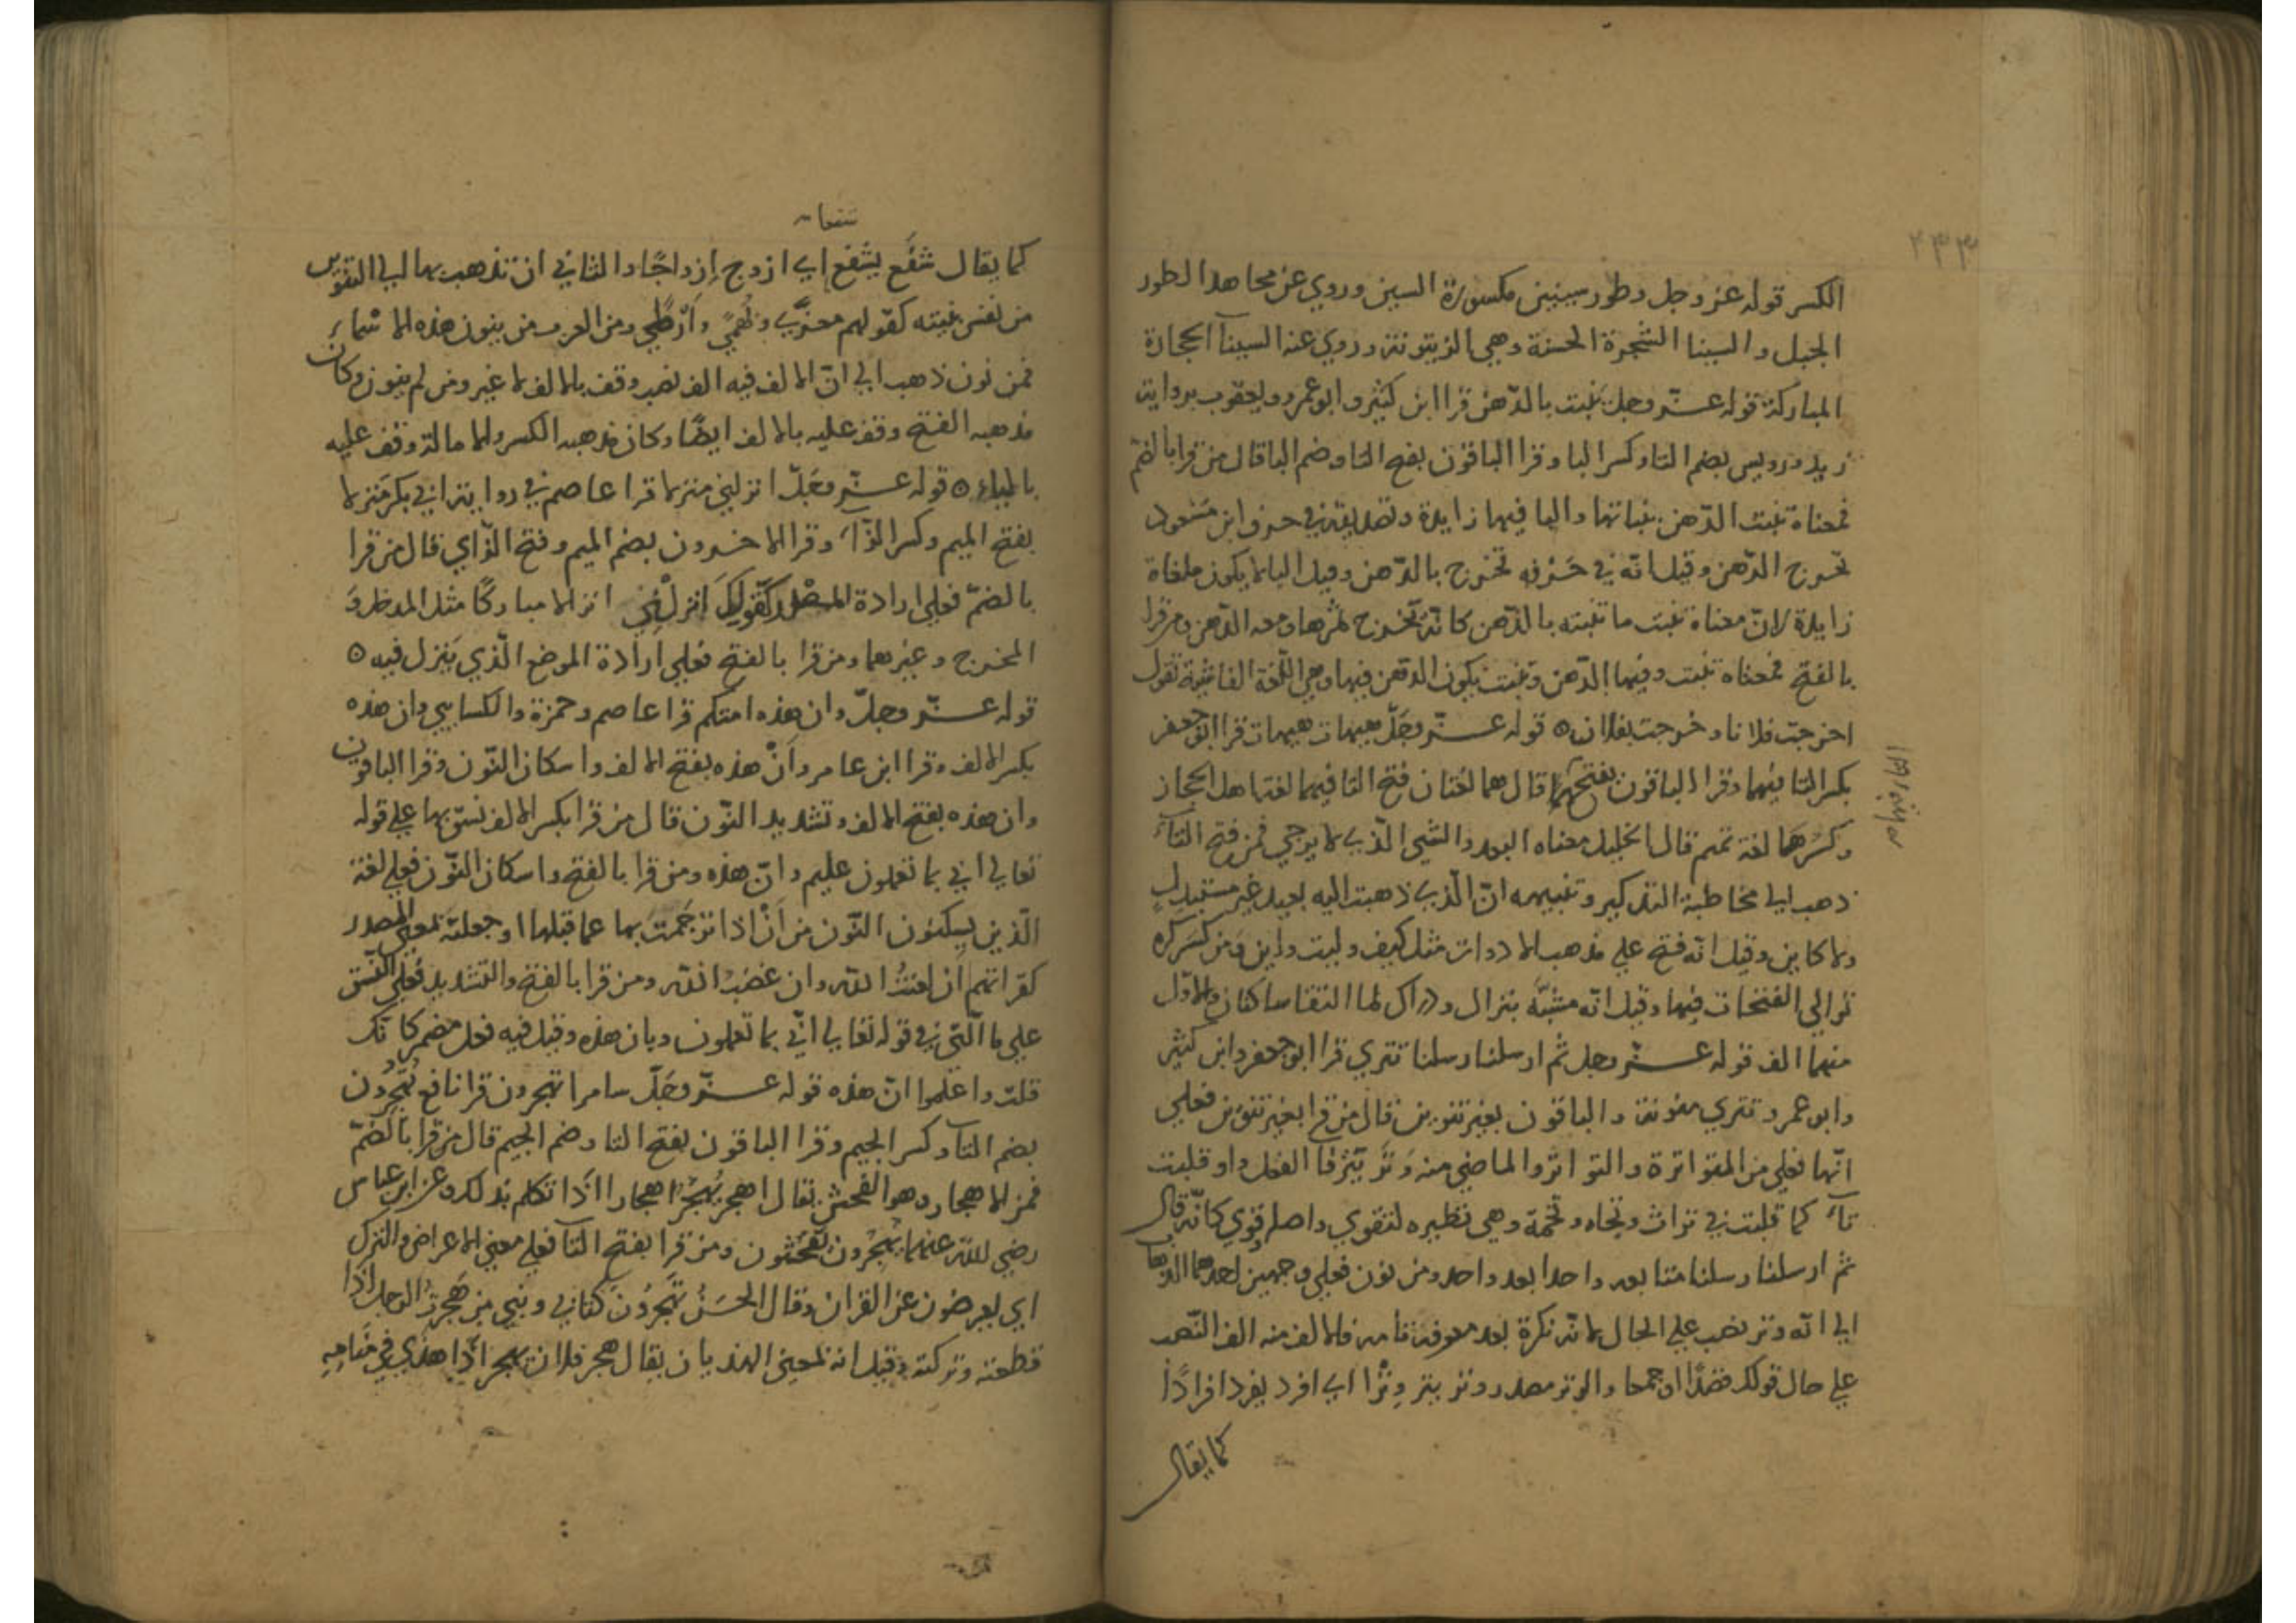 ٤٣٣
الكسر قوله عز وجل وطور سينين مكسورة السين وروي عن مجاهد الطور
الجبل والسينا الشجرة الحسنة وهي الزيتونة وروي عنه السينآ الحجارة
المباركة قوله عـزّ وجل تنبت بالدّهن قرا ابن كثير وابو عمرو ويعقوب برواية
زيد ورويس بضم التا وكسر البا وقرا الباقون بفتح التا وضم البا قال من قرا بالضم
فمعناه تنبت الدّهن بنباتها والبا فيها زايدة وتصديقه في حرف ابن مسعود
تخرج الدّهن وقيل انّه في حَرْفه تخرج بالدّهن وقيل البا لا يكون ملغاة
زايدة لانّ معناه تنبت ما تنبته بالدّهن كانّه تخرج ثمرها ومعه الدّهن ومن قرا
بالفتح فمعناه تنبت وفيها الدّهن وتنبت بكون الدّهن فيها وهي اللّغة الفاشية تقول
اخرجت فلانا وخرجت بفلان ه قوله عـزّ وجَلّ هيهات هيهات قرا ابو جعفر
بكسر التا فيهما وقرا الباقون بفتحهما قال هما لغتان فتح التا فيهما لغة اهل الحجاز
وكسرهما لغة تميم قال الخليل معناه البعد والشي الّذي لا يرجي فمن فتح التآء
ذهب الي مخاطبة التذكير وتنبيهه انّ الّذي ذهبت اليه بعيد غير مستقبل
ولا كاين وقيل انّه فتح علي مذهب الادوات مثل كيف وليت واين ومن كسر كره
توالي الفتحات فيها وقيل انّه مشبّه بنزال ودراك لما التقا ساكنان والاوّل
منهما الف قوله عـزّ وجل ثم ارسلنا رسلنا تتري قرا ابو جعفر وابن كثير
وابو عمرو تتري منونة والباقون بغير تنوين قال من قرا بغير تنوين فعلي
انّها فعلي من المتواترة والتواتر والماضي منه وَتَر يَتِرُ فا الفعل واو قلبت
تآء كما قلبت في تراث وتجاه وتخمة وهي نظيره لتقوي واصله وقوي كانّه قال
ثم ارسلنا رسلنا متتابعه واحدا بعد واحد ومن نون فعلي وجهين احدهما الذهاب
الي انّه وتر نصب علي الحال لانّه نكرة بعد معرفة تامة فالالف منه الف النّصب
علي حال قولك فضذًا او جمعا والوتر مصدر وتر يتر وِتْرًا اي افرد يفرد افرادًا
كما يقال
كما يقال شَفَع يشفع اي ازدوج اِزدواجًا والثاني ان تذهب بها الي التنوين
من نفس بنيته كقولهم معزًي وبُهمًي واَرْطًي ومن العرب من ينون هذه الاسماء
فمن نون ذهب الي انّ الالف فيه الف نصب وقف بالالف لا غير ومن لم ينون وكان
مذهبه الفتح وقف عليه بالالف ايضًا وكان مذهبه الكسر والامالة وقف عليه
بالياء ه قوله عـزّ وجَلّ انزلني منزلا قرا عاصم في رواية ابي بكر مَنزلا
بفتح الميم وكسر الزّآء وقرا الاخرون بضم الميم وفتح الزّاي قال من قرا
بالضمّ فعلي ارادة المصدر كقولك انزلني انزالا مباركًا مثل المدخل و
المخرج وغيرهما ومن قرا بالفتح فعلي ارادة الموضع الّذي ينزل فيه ه
قوله عـزّ وجلّ وان هذه امتكم قرا عاصم وحمزة والكسايي وان هذه
بكسر الالف وقرا ابن عامر وأنْ هذه بفتح الالف واسكان النّون وقرا الباقون
وان هذه بفتح الالف وتشديد النّون قال من قرا بكسر الالف نسق بها علي قوله
تعالي اني بما تعملون عليم وانّ هذه ومن قرا بالفتح واسكان النّون فعلي لغة
الّذين يسكنون النّون من اَنْ اذا ترجَمتَ بها عما قبلها او جعلته بمعني المصدر
كقراتهم ان لعنتُ الله وان غضبُ الله ومن قرا بالفتح والتشديد فعلي النّسق
علي ما الّتي في قوله تعالي انّي بما تعملون وبان هذه وقيل فيه فعل مضمر كانك
قلت واعلموا انّ هذه قوله عـزّ وجَلّ سامرا تهجرون قرا نافع تُهجِرُون
بضم التآ وكسر الجيم وقرا الباقون بفتح التا وضم الجيم قال من قرا بالضّمّ
فمن الاهجار وهو الفحش يقال اهجر يُهجِرُ اهجارا اذا تكلم بذلك وعن ابن عباس
رضي الله عنهما يُهجِرُون يفحشون ومن قرا بفتح التآ فعلي معني الاعراض والترك
اي يعرضون عن القران وقال الحَسَنُ تَهجُرُونَ كتابي ونبيي من هَجَرتُ الرجل اذا
قطعته وتركته وقيل انه بمعني الهذيان يقال هجر فلان يهجر اذا هذي في منامه